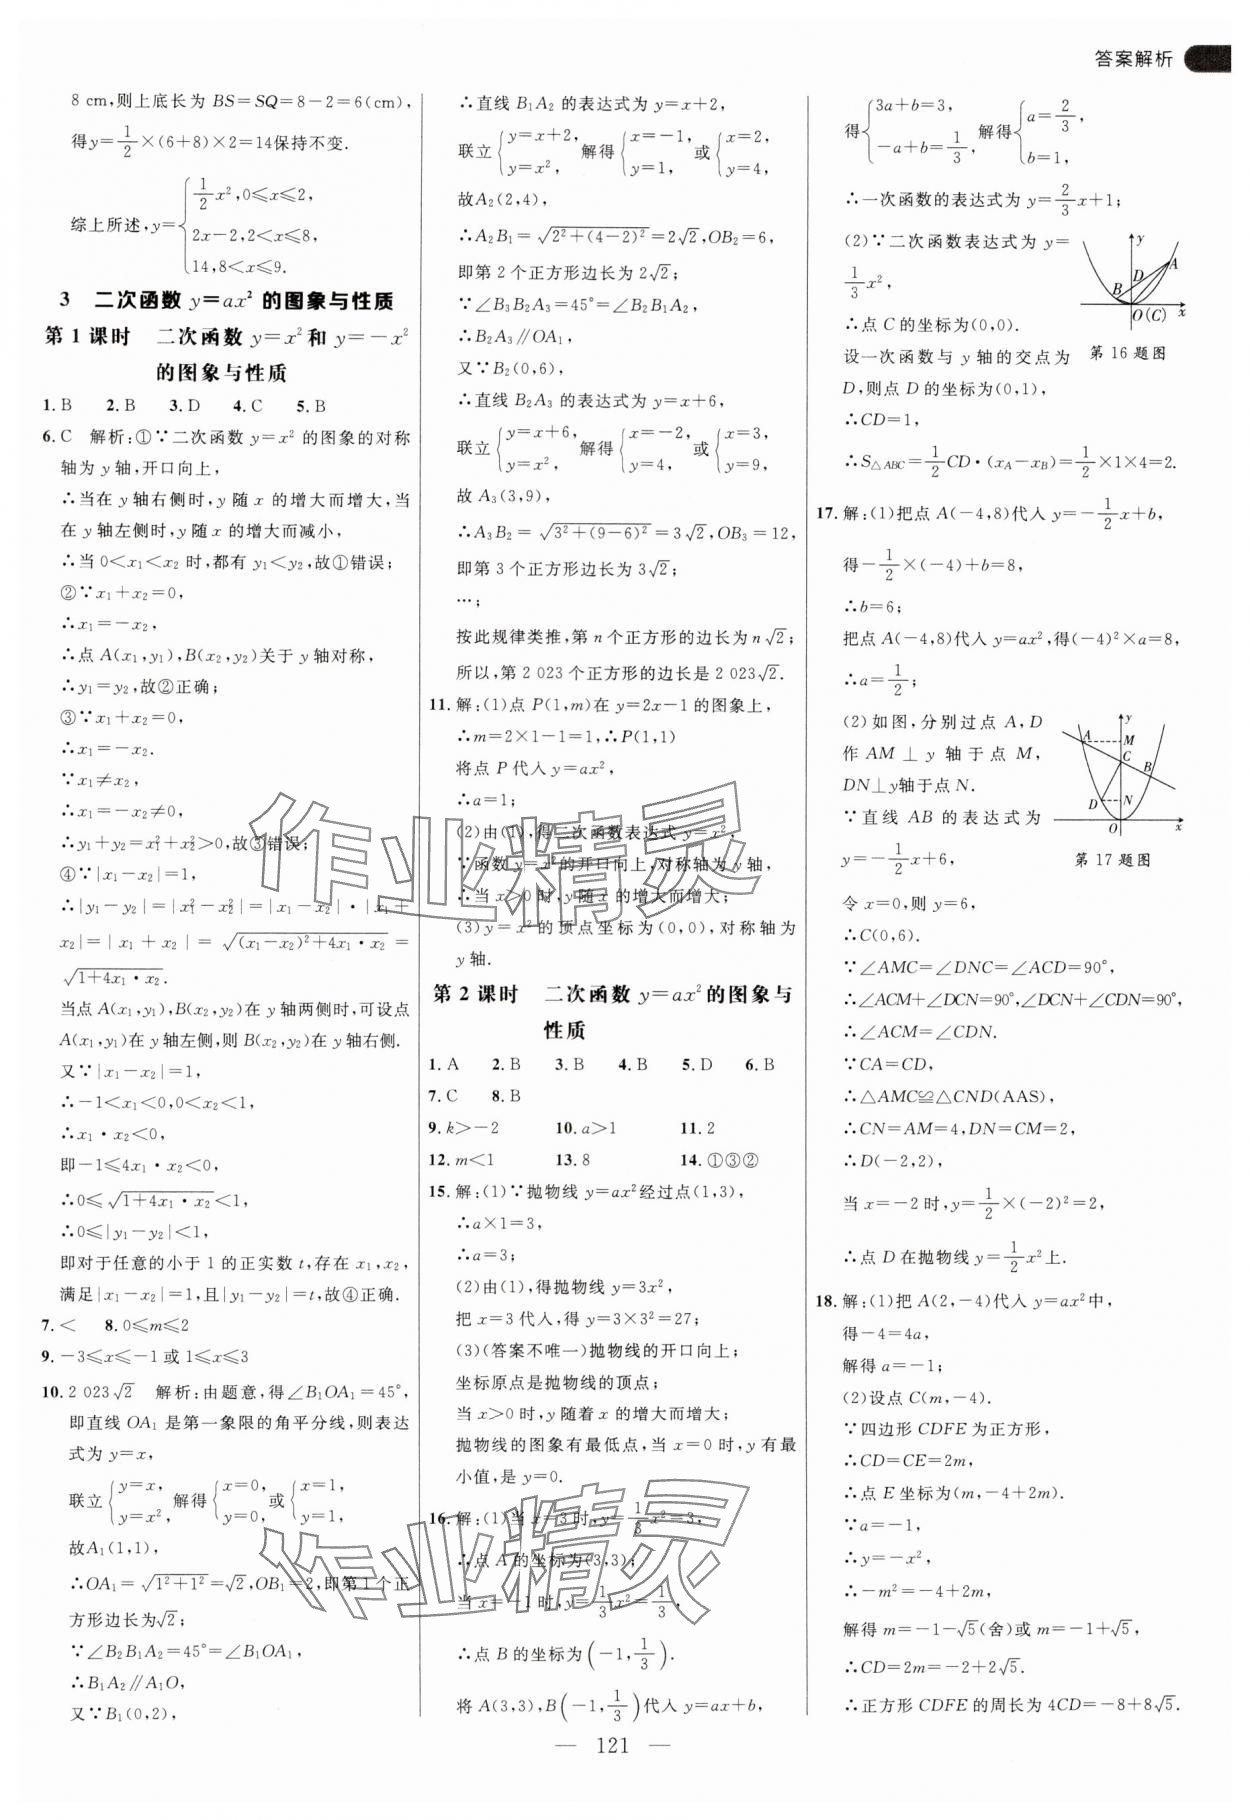 答案解析
8 cm,则上底长为 BS=SQ=8-2=6(cm),
得y=1/2×(6+8)×2=14保持不变.
综上所述,y={1/2x²,0≤x≤2,
2x-2,2<x≤8,
14,8<x≤9.
3 二次函数 y=ax² 的图象与性质
第1课时 二次函数 y=x² 和 y=-x²
的图象与性质
1. B 2. B 3. D 4. C 5. B
6. C 解析:①∵二次函数 y=x² 的图象的对称
轴为 y 轴,开口向上,
∴当在 y 轴右侧时,y 随 x 的增大而增大,当
在 y 轴左侧时,y 随 x 的增大而减小,
∴当 0<x₁<x₂ 时,都有 y₁<y₂,故①错误;
②∵x₁+x₂=0,
∴x₁=-x₂,
∴点 A(x₁,y₁),B(x₂,y₂)关于 y 轴对称,
∴y₁=y₂,故②正确;
③∵x₁+x₂=0,
∴x₁=-x₂.
∵x₁≠x₂,
∴x₁=-x₂≠0,
∴y₁+y₂=x₁²+x₂²>0,故③错误;
④∵|x₁-x₂|=1,
∴|y₁-y₂|=|x₁²-x₂²|=|x₁-x₂|·|x₁+
x₂|=|x₁+x₂|=√((x₁-x₂)²+4x₁·x₂)=
√(1+4x₁·x₂).
当点 A(x₁,y₁),B(x₂,y₂)在 y 轴两侧时,可设点
A(x₁,y₁)在 y 轴左侧,则 B(x₂,y₂)在 y 轴右侧.
又∵|x₁-x₂|=1,
∴-1<x₁<0,0<x₂<1,
∴x₁·x₂<0,
即-1≤4x₁·x₂<0,
∴0≤√(1+4x₁·x₂)<1,
∴0≤|y₁-y₂|<1,
即对于任意的小于 1 的正实数 t,存在 x₁,x₂,
满足|x₁-x₂|=1,且|y₁-y₂|=t,故④正确.
7. < 8. 0≤m≤2
9. -3≤x≤-1 或 1≤x≤3
10. 2 023√2 解析:由题意,得∠B₁OA₁=45°,
即直线 OA₁ 是第一象限的角平分线,则表达
式为 y=x,
联立{y=x, y=x², 解得{x=0, y=0, 或{x=1, y=1,
故A₁(1,1),
∴OA₁=√(1²+1²)=√2,OB₁=2,即第1个正
方形边长为√2;
∵∠B₂B₁A₂=45°=∠B₁OA₁,
∴B₁A₂∥A₁O,
又∵B₁(0,2),
∴直线 B₁A₂ 的表达式为 y=x+2,
联立{y=x+2, y=x², 解得{x=-1, y=1, 或{x=2, y=4,
故A₂(2,4),
∴A₂B₁=√(2²+(4-2)²)=2√2,OB₂=6,
即第 2 个正方形边长为 2√2;
∵∠B₃B₂A₃=45°=∠B₂B₁A₂,
∴B₂A₃∥OA₁,
又∵B₂(0,6),
∴直线 B₂A₃ 的表达式为 y=x+6,
联立{y=x+6, y=x², 解得{x=-2, y=4, 或{x=3, y=9,
故 A₃(3,9),
∴A₃B₂=√(3²+(9-6)²)=3√2,OB₃=12,
即第 3 个正方形边长 3√2;
…;
按此规律类推,第 n 个正方形的边长为 n√2;
所以,第 2 023 个正方形的边长是 2 023√2.
11. 解:(1)点 P(1,m)在 y=2x-1 的图象上,
∴m=2×1-1=1,∴P(1,1)
将点 P代入 y=ax²,
∴a=1;
(2)由(1),得二次函数表达式 y=x²,
∵函数 y=x² 的开口向上,对称轴为 y 轴,
∴当 x>0 时,y 随 x 的增大而增大;
(3)y=x² 的顶点坐标为(0,0),对称轴为
y 轴.
第2课时 二次函数 y=ax² 的图象与
性质
1. A 2. B 3. B 4. B 5. D 6. B
7. C 8. B
9. k>-2 10. a>1 11. 2
12. m<1 13. 8 14. ①③②
15. 解:(1)∵抛物线 y=ax² 经过点(1,3),
∴a×1=3,
∴a=3;
(2)由(1),得抛物线 y=3x²,
把 x=3 代入,得y=3×3²=27;
(3)(答案不唯一)抛物线的开口向上;
坐标原点是抛物线的顶点;
当 x>0 时,y 随着 x 的增大而增大;
抛物线的图象有最低点,当 x=0 时,y 有最
小值,是 y=0.
16. 解:(1)当 x=3 时,y=1/3x²=3,
∴点 A 的坐标为(3,3);
当 x=-1 时,y=1/3x²=1/3,
∴点 B 的坐标为(-1,1/3).
将 A(3,3),B(-1,1/3)代入 y=ax+b,
得{3a+b=3, -a+b=1/3, 解得{a=2/3, b=1,
∴一次函数的表达式为 y=2/3x+1;
(2)∵二次函数表达式为 y=
1/3x²,
∴点 C 的坐标为(0,0).
设一次函数与 y 轴的交点为
D,则点 D 的坐标为(0,1),
∴CD=1,
∴S△ABC=1/2CD·(xA-xB)=1/2×1×4=2.
y
A
D
B
O(C)
x
第16题图
17. 解:(1)把点 A(-4,8)代入 y=-1/2x+b,
得-1/2×(-4)+b=8,
∴b=6;
把点 A(-4,8)代入 y=ax²,得(-4)²×a=8,
∴a=1/2;
(2)如图,分别过点 A,D
作 AM⊥y 轴于点 M,
DN⊥y轴于点 N.
∵直线 AB 的表达式为
y=-1/2x+6,
y
A
M
C
B
D
N
O
x
第17题图
令 x=0,则 y=6,
∴C(0,6).
∵∠AMC=∠DNC=∠ACD=90°,
∴∠ACM+∠DCN=90°,∠DCN+∠CDN=90°,
∴∠ACM=∠CDN.
∵CA=CD,
∴△AMC≌△CND(AAS),
∴CN=AM=4,DN=CM=2,
∴D(-2,2),
当 x=-2 时,y=1/2×(-2)²=2,
∴点 D 在抛物线 y=1/2x²上.
18. 解:(1)把 A(2,-4)代入 y=ax²中,
得-4=4a,
解得 a=-1;
(2)设点 C(m,-4).
∵四边形 CDFE 为正方形,
∴CD=CE=2m,
∴点 E 坐标为(m,-4+2m).
∵a=-1,
∴y=-x²,
∴-m²=-4+2m,
解得 m=-1-√5(舍)或 m=-1+√5,
∴CD=2m=-2+2√5.
∴正方形 CDFE 的周长为 4CD=-8+8√5.
作业精灵
作业精灵
— 121 —